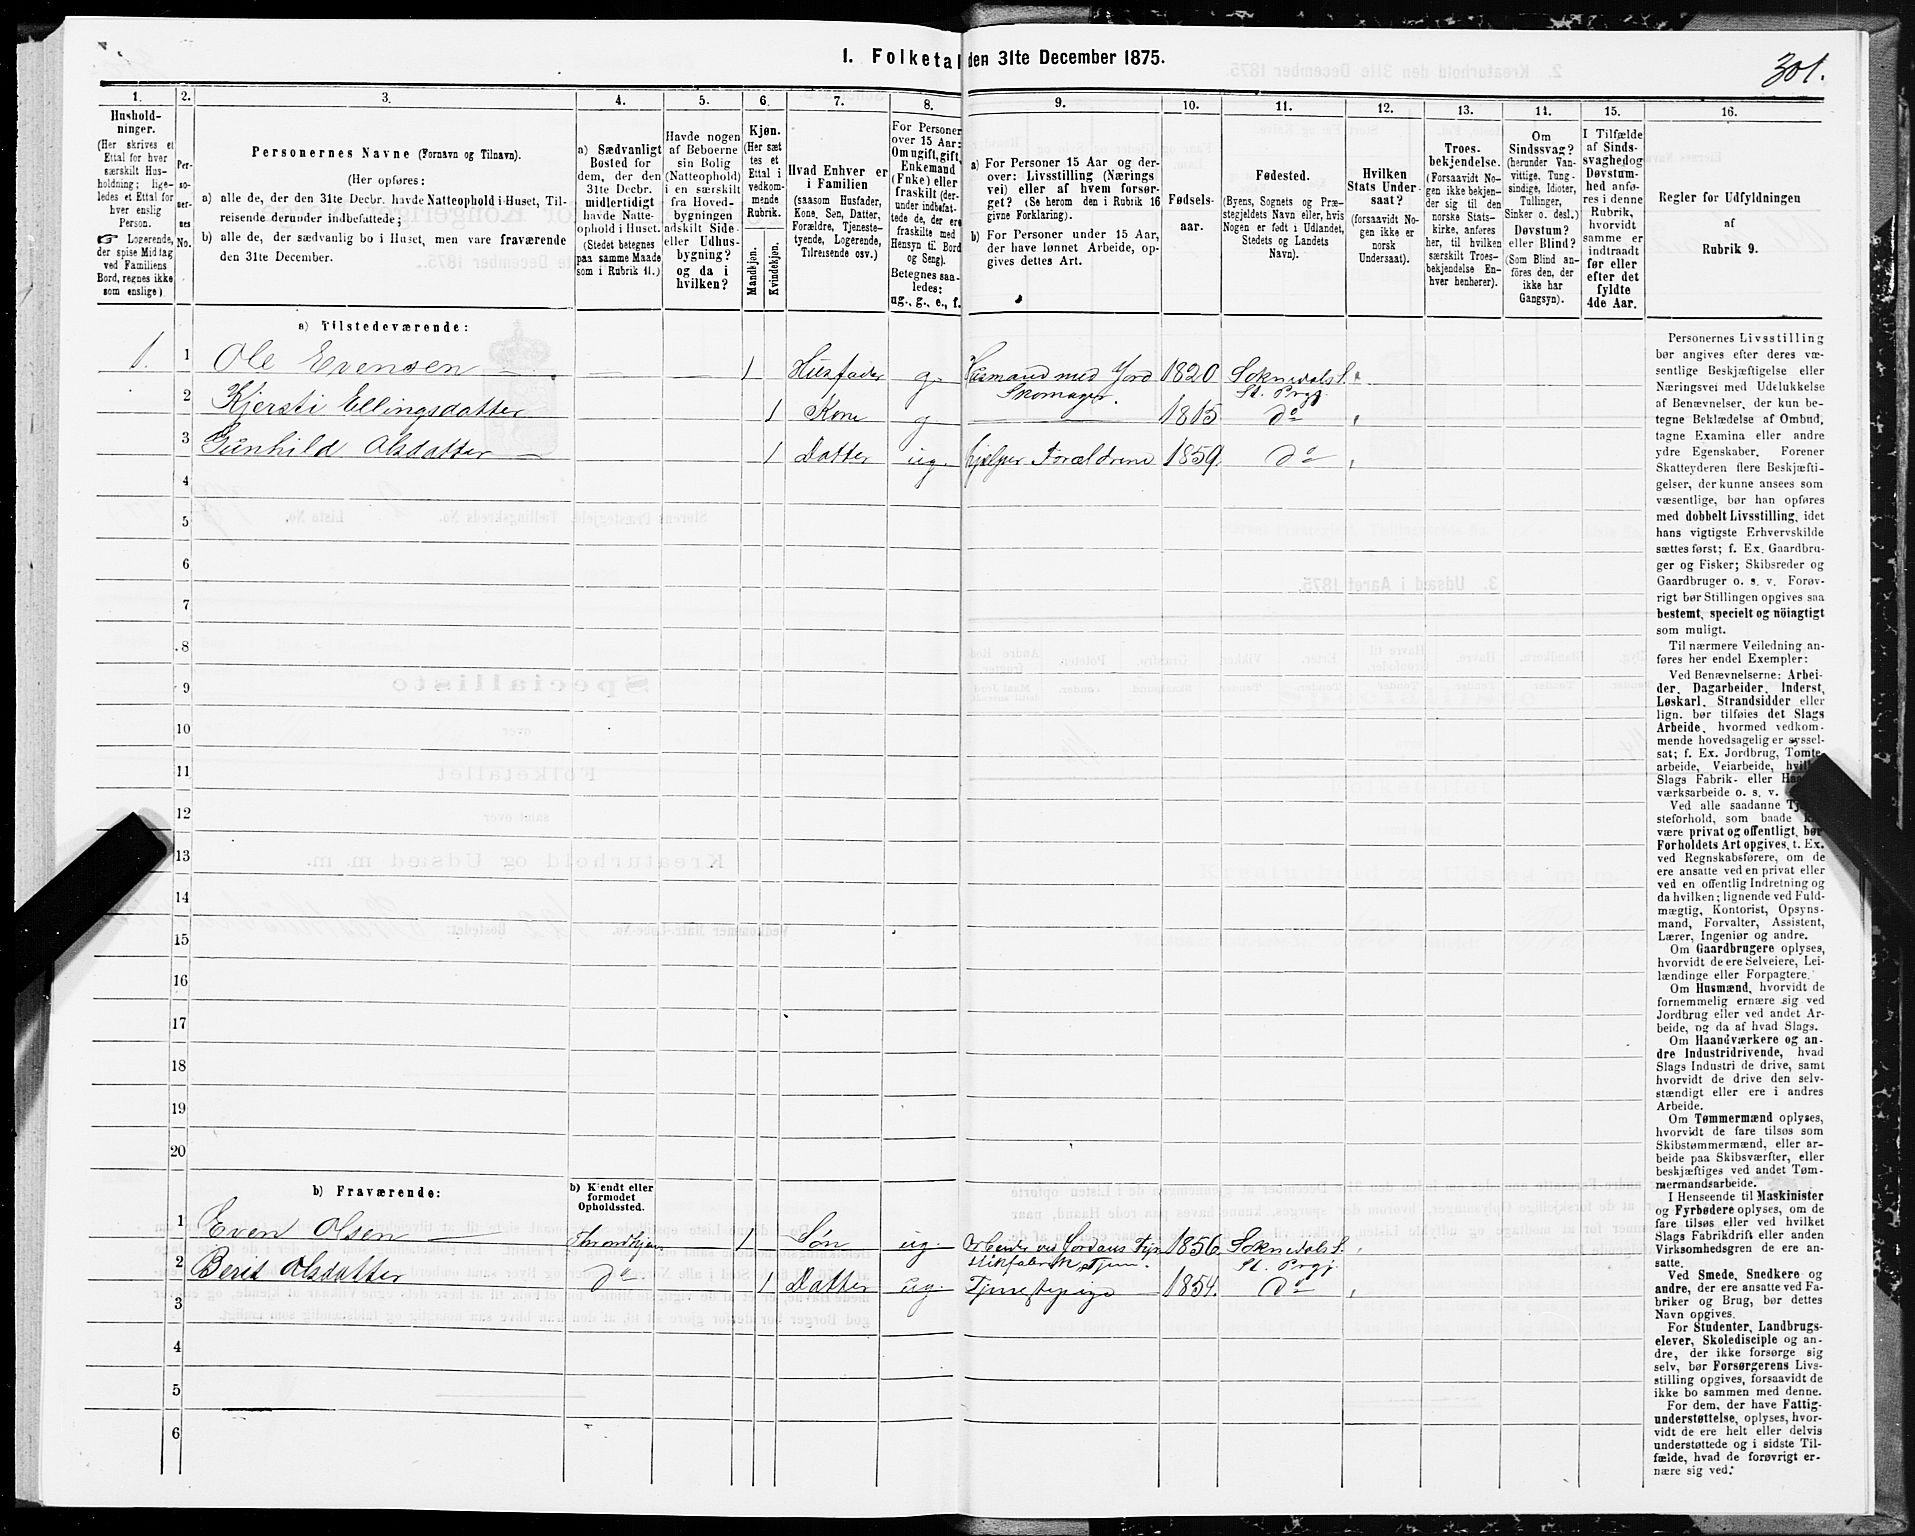 1. Folketal den 31te December 1875.
301.
1. 2. 3. 4. 5. 6. 7. 8. 9. 10. 11. 12. 13. 14. 15. 16.
Hushold-
ninger.
(Her skrives et
Ettal for hver
særskilt Hus-
holdning; lige-
ledes et Ettal for
hver enslig
Person.
☞ Logerende,
der spise Middag
ved Familiens
Bord, regnes ikke
som enslige)
Per-
so-
ner-
nes
No.
Personernes Navne (Fornavn og Tilnavn).
(Her opføres:
a) alle de, der den 31te Decbr. havde Natteophold i Huset, Til-
reisende derunder indbefattede;
b) alle de, der sædvanlig bo i Huset, men vare fraværende
den 31te December.
a) Sædvanligt
Bosted for
dem, der den
31te Decbr.
midlertidigt
havde Natte-
ophold i Huset.
(Stedet betegnes
paa samme Maade
som i Rubrik 11.)
Havde nogen
af Beboerne
sin Bolig
(Natteophold)
i en særskilt
fra Hoved-
bygningen
adskilt Side-
eller Udhus-
bygning?
og da i
hvilken?
Kjøn.
(Her sæt
tes et
Ettal i
vedkom-
mende
Rubrik.
Mandkjøn.
Kvindekjøn.
Hvad Enhver er
i Familien
(saasom Husfader,
Kone, Søn, Datter,
Forældre, Tjeneste-
tyende, Logerende,
Tilreisende osv.)
For Personer
over 15 Aar:
Om ugift, gift,
Enkemand
(Enke) eller
fraskilt (der-
under indbefat-
tede de, der ere
fraskilte med
Hensyn til Bord
og Seng).
Betegnes saa-
ledes:
ug., g., e., f.
a) For Personer 15 Aar og der-
over: Livsstilling (Nærings
vei) eller af hvem forsør-
get? (Se herom den i Rubrik 16
givne Forklaring).
b) For Personer under 15 Aar,
der have lønnet Arbeide, op-
gives dettes Art.
Fødsels-
aar.
Fødested.
(Byens, Sognets og Præ-
stegjeldets Navn eller, hvis
Nogen er født i Udlandet,
Stedets og Landets
Navn).
Hvilken
Stats Under-
saat?
(forsaavidt No-
gen ikke er
norsk
Undersaat).
Troes-
bekjendelse.
(Forsaavidt No-
gen ikke bekjen-
der sig til den
norske Stats-
kirke, anføres
her, til hvilken
særskilt Troes-
bekjendelse En-
hver henhører).
Om
Sindssvag?
(herunder Van-
vittige, Tung-
sindige, Idioter,
Tullinger,
Sinker o. desl.)
Døvstum?
eller Blind?
(Som Blind an-
føres den, der
ikke har
Gangsyn).
I Tilfælde
af Sinds-
svaghed og
Døvstum-
hed anfø-
res i denne
Rubrik,
hvorvidt
samme er
indtraadt
før eller
efter det
fyldte
4de Aar.
Regler for Udfyldningen
af
Rubrik 9.
a) Tilstedeværende:
1. 1 Ole Evensen — — — 1 Husfader g. Husmand med Jord 1820 Soknedals S.
Skomager. St. Prgj.
2 Kjersti Ellingsdatter 1 Kone g — 1815 do
3 Gunhild Olsdatter — 1 Datter ug. hjelper Forældrene 1859. do
4
5
6
7
8
9
10
11
12
13
14
15
16
17
18
19
20
b) Fraværende:
b) Kjendt eller
formodet
Opholdssted.
1 Even Olsen — Throndhjem 1 Søn ug. 1856. Soknedals S.
St. Prgj.
2 Berit Olsdatter do 1 Datter ug. Tjenestepige 1854. do
3
4
5
6
Personernes Livsstilling
bør angives efter deres væ-
sentlige Beskjæftigelse eller
Næringsvei med Udelukkelse
af Benævnelser, der kun be-
tegne Beklædelse af Ombud,
tagne Examina eller andre
ydre Egenskaber. Forener
Skatteyderen flere Beskjæfti-
gelser, der kunne ansees som
væsentlige, bør han opføres
med dobbelt Livsstilling, idet
hans vigtigste Erhvervskilde
sættes først; f. Ex. Gaardbru-
ger og Fisker; Skibsreder og
Gaardbruger o. s. v. Forøv-
rigt bør Stillingen opgives saa
bestemt, specielt og nöiagtigt
som muligt.
Til nærmere Veiledning an-
føres her endel Exempler:
Ved Benævnelserne: Arbei-
der, Dagarbeider, Inderst,
Løskarl, Strandsidder eller
lign. bør tilføies det Slags
Arbeide, hvormed vedkom-
mende hovedsagelig er syssel-
sat; f. Ex. Jordbrug, Tomte-
arbeide, Veiarbeide,
Slags Fabrik- eller
værksarbeide o. s. v.
Ved alle saadanne
steforhold, som baade
være privat og offentligt, bør
Forholdets Art opgives, t. Ex.
ved Regnskabsførere, om de
ere ansatte ved en privat eller
ved en offentlig Indretning og
da hvilken; lignende ved Fuld-
mægtig, Kontorist, Opsyns-
mand, Forvalter, Assistent,
Lærer, Ingeniør og andre.
Om Gaardbrugere oplyses,
hvorvidt de ere Selveiere, Lei-
lændinge eller Forpagtere.
Om Husmænd, hvorvidt de
fornemmelig ernære sig ved
Jordbrug eller ved andet Ar-
beide, og da af hvad Slags.
Om Haandværkere og an-
dre Industridrivende, hvad
Slags Industri de drive, samt
hvorvidt de drive den selv-
stændigt eller ere i andres
Arbeide.
Om Tømmermænd oplyses,
hvorvidt de fare tilsøs som
Skibstømmermænd, eller ar-
beide paa Skibsværfter, eller
beskjæftiges ved andet Tøm-
mermandsarbeide.
I Henseende til Maskinister
og Fyrbødere oplyses, om de
fare tilsøs eller ved hvilket
Slags Fabrikdrift eller anden
Virksomhedsgren de ere an-
satte.
Ved Smede, Snedkere og
andre, der ere ansatte ved Fa-
briker og Brug, bør dettes
Navn opgives.
For Studenter, Landbrugs-
elever, Skoledisciple og an-
dre, der ikke forsørge sig
selv, bør Forsørgerens Livs-
stilling opgives, forsaavidt de
ikke bo sammen med denne.
For dem, der have Fattig-
understøttelse, oplyses, hvor-
vidt de ere helt eller delvis
understøttede og i sidste Til-
fælde, hvad de forøvrigt er-
nære sig ved.